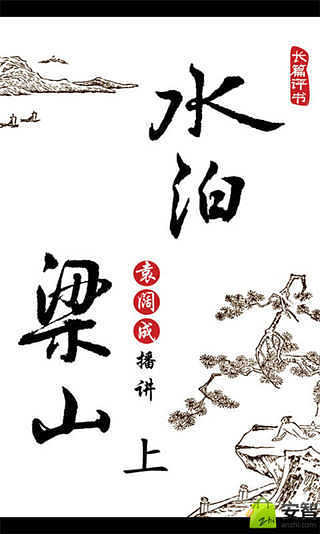 长篇评书
水泊
梁山
袁阔成
播讲
上
安智
anzhi.com